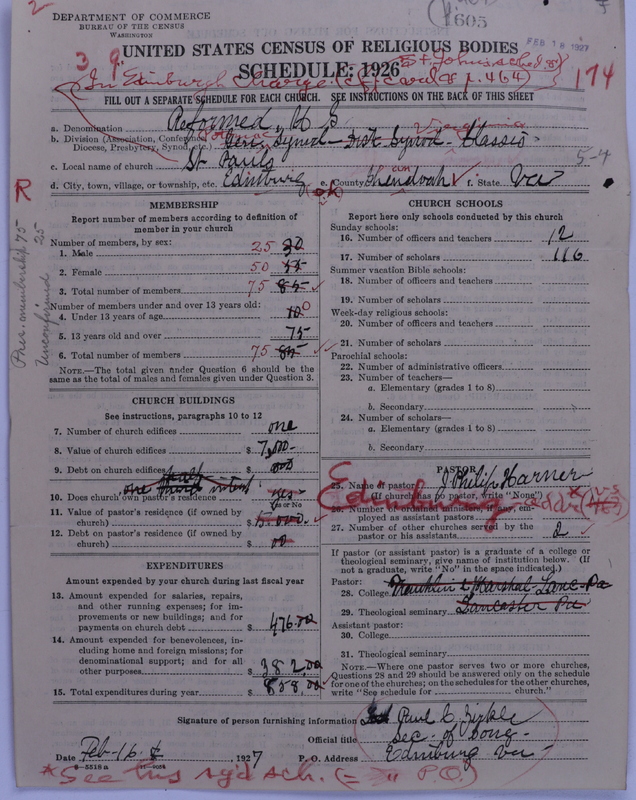 DEPARTMENT OF COMMERCE
BUREAU OF THE CENSUS
WASHINGTON
605
FEB 18 1927
UNITED STATES CENSUS OF RELIGIOUS BODIES
SCHEDULE: 1926
3 9
174
In Edinburg Charge
p. 464)
FILL OUT A SEPARATE SCHEDULE FOR EACH CHURCH. SEE INSTRUCTIONS ON THE BACK OF THIS SHEET
a. Denomination Reformed, U S
Potomac Virginia
b. Division (Association, Conference, Diocese, Presbytery, Synod, etc.) Gen. Synod - Dist. Synod - Classis
c. Local name of church St Pauls
5-4
d. City, town, village, or township, etc. Edinburg (ok) e. County Shendoah f. State Va
R
Pres. membership 75
Unconfirmed 25
MEMBERSHIP
Report number of members according to definition of member in your church
Number of members, by sex:
1. Male 25 30
2. Female 50 55
3. Total number of members 75 85
Number of members under and over 13 years old:
4. Under 13 years of age 10 0
5. 13 years old and over 75
6. Total number of members 75 85
NOTE.—The total given under Question 6 should be the same as the total of males and females given under Question 3.
CHURCH BUILDINGS
See instructions, paragraphs 10 to 12
7. Number of church edifices one
8. Value of church edifices $ 7,000-
9. Debt on church edifices $ 000
10. Does church own pastor's residence yes
Yes or No
11. Value of pastor's residence (if owned by church) $ 5000.
12. Debt on pastor's residence (if owned by church) $ 00
EXPENDITURES
Amount expended by your church during last fiscal year
13. Amount expended for salaries, repairs, and other running expenses; for improvements or new buildings; and for payments on church debt $ 476.00
14. Amount expended for benevolences, including home and foreign missions; for denominational support; and for all other purposes $ 382.00
15. Total expenditures during year $ 858.00
CHURCH SCHOOLS
Report here only schools conducted by this church
Sunday schools:
16. Number of officers and teachers 12
17. Number of scholars 116
Summer vacation Bible schools:
18. Number of officers and teachers
19. Number of scholars
Week-day religious schools:
20. Number of officers and teachers
21. Number of scholars
Parochial schools:
22. Number of administrative officers
23. Number of teachers—
a. Elementary (grades 1 to 8)
b. Secondary
24. Number of scholars—
a. Elementary (grades 1 to 8)
b. Secondary
PASTOR
25. Name of pastor J Philip Harner
(If church has no pastor, write "None")
Edinburg
26. Number of ordained ministers, if any, employed as assistant pastors
27. Number of other churches served by the pastor or his assistants 2
If pastor (or assistant pastor) is a graduate of a college or theological seminary, give name of institution below. (If not a graduate, write "No" in the space indicated.)
Pastor:
28. College Franklin & Marshal - Lanc - Pa
29. Theological seminary Lancaster Pa
Assistant pastor:
30. College
31. Theological seminary
NOTE.—Where one pastor serves two or more churches, Questions 28 and 29 should be answered only on the schedule for one of the churches; on the schedules for the other churches, write "See schedule for church."
Signature of person furnishing information Paul C Zirkle
Official title Sec. of Cong-
Date Feb-16. 1927 P. O. Address Edinburg Va-
8-5518a